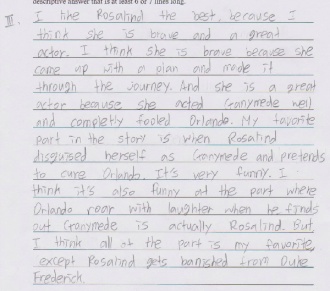 descriptive answer that is at least 6 or 7 lines long.
III. I like Rosalind the best, because I
think she is brave and a great
actor. I think she is brave because she
came up with a plan and made it
through the journey. And she is a great
actor because she acted Ganymede well
and completly fooled Orlando. My favorite
part in the story is when Rosalind
disguised herself as Ganymede and pretends
to cure Orlando. It's very funny. I
think it's also funny at the part where
Orlando roar with laughter when he finds
out Ganymede is actually Rosalind. But
I think all of the part is my favorite,
except Rosalind gets banished from Duke
Frederick.